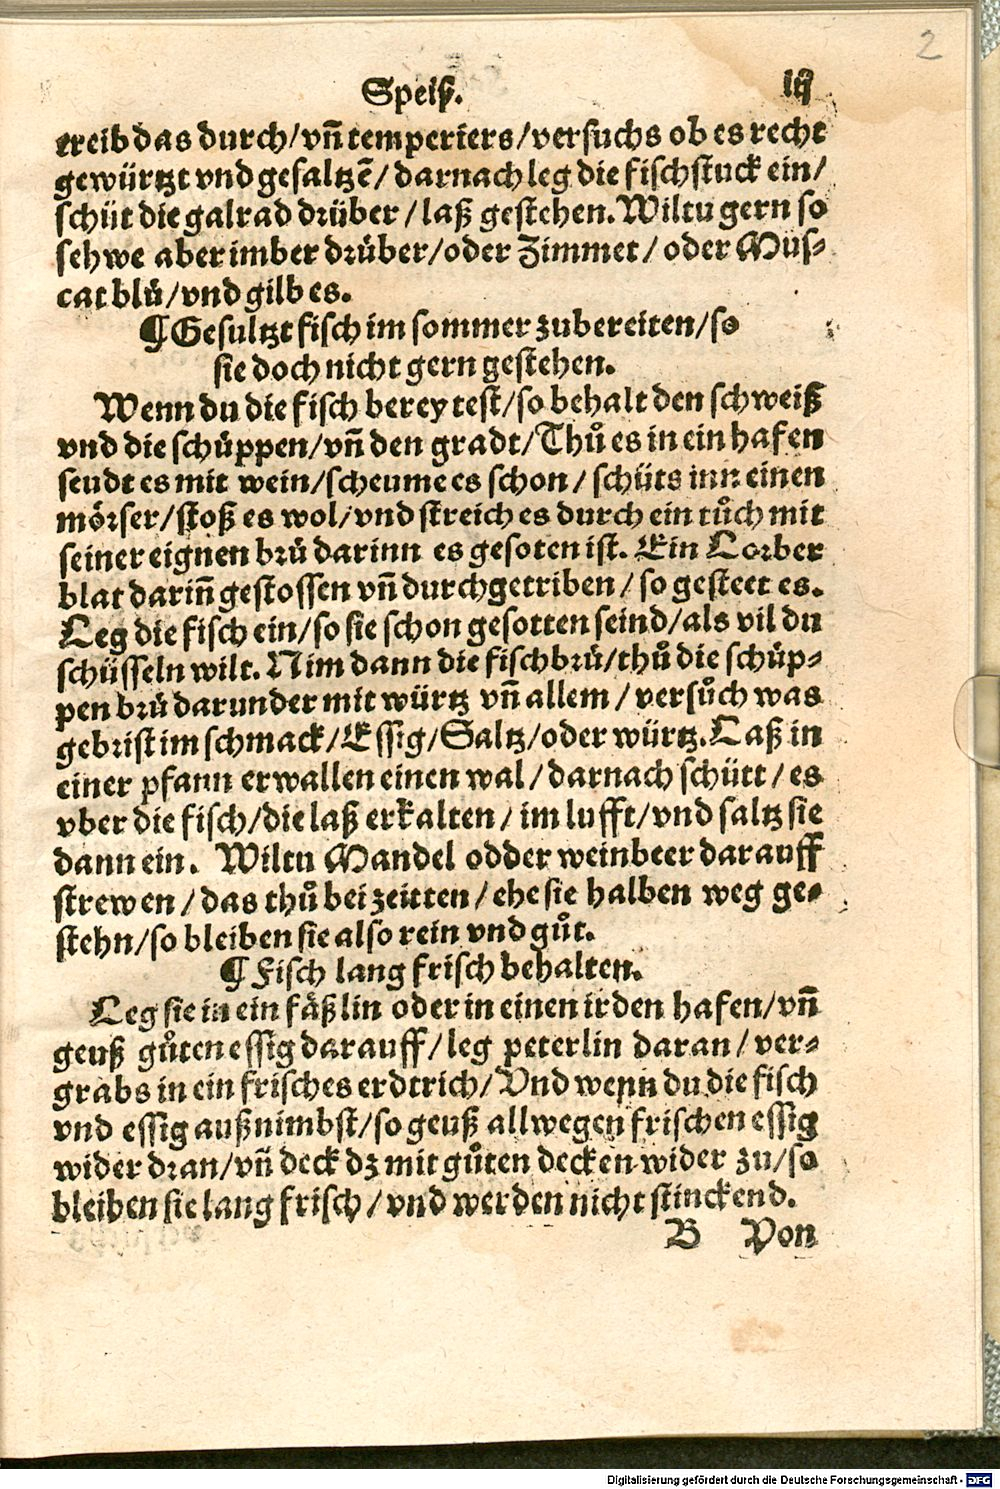 2
Speiß.
treib das durch/vñ temperiers/versuchs ob es recht
gewürtzt vnd gesaltzē/darnach leg die fischstuck ein/
schüt die galrad drüber/laß gestehen. Wiltu gern so
sehwe aber imber drüber/oder Zimmet/oder Mus-
cat blů/vnd gilb es.
¶ Gesultzt fisch im sommer zubereiten/so
sie doch nicht gern gestehen.
Wenn du die fisch bereytest/so behalt den schweiß
vnd die schüppen/vñ den gradt/Thů es in ein hafen
seudt es mit wein/scheume es schon/schüts inn einen
mörser/stoß es wol/vnd streich es durch ein tůch mit
seiner eignen brü darinn es gesoten ist. Ein Lorber
blat dariñ gestossen vñ durchgetriben/so gesteet es.
Leg die fisch ein/so sie schon gesotten seind/als vil du
schüsseln wilt. Nim dann die fischbrü/thů die schüp-
pen brü darunder mit würtz vñ allem/versůch was
gebrist im schmack/Essig/Saltz/oder würtz. Laß in
einer pfann erwallen einen wal/darnach schütt/es
vber die fisch/die laß erkalten/im lufft/vnd saltz sie
dann ein. Wiltu Mandel odder weinbeer darauff
strewen/das thů bei zeitten/ehe sie halben weg ge-
stehn/so bleiben sie also rein vnd gůt.
¶ Fisch lang frisch behalten.
Leg sie in ein fäßlin oder in einen irden hafen/vñ
geuß gůten essig darauff/leg peterlin daran/ver-
grabs in ein frisches erdtrich/Vnd wenn du die fisch
vnd essig außnimbst/so geuß allwegen frischen essig
wider dran/vñ deck dz mit gůten decken wider zu/so
bleiben sie lang frisch/vnd werden nicht stinckend.
B Von
Digitalisierung gefördert durch die Deutsche Forschungsgemeinschaft - DFG